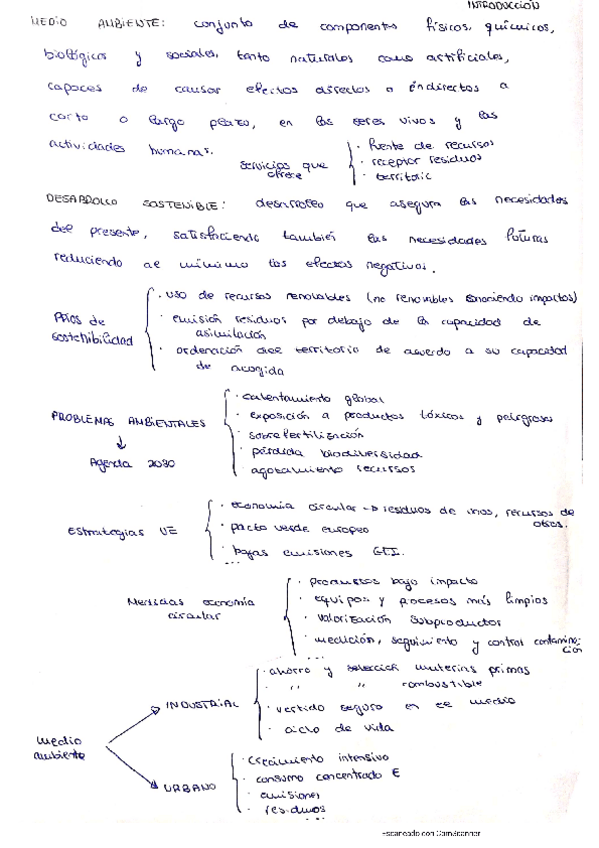 INTRODUCCIÓN
MEDIO AMBIENTE: conjunto de componentes físicos, químicos,
biológicos y sociales, tanto naturales como artificiales,
capaces de causar efectos directos o indirectos a
corto o largo plazo, en los seres vivos y las
actividades humanas.
servicios que ofrece
· fuente de recursos
· receptor residuos
· territorio
DESARROLLO SOSTENIBLE: desarrollo que asegura las necesidades
del presente, satisfaciendo también las necesidades futuras
reduciendo al mínimo los efectos negativos.
sostenibilidad
· uso de recursos renovables (no renovables conociendo impactos)
· emisión residuos por debajo de la capacidad de
asimilación
· ordenación del territorio de acuerdo a su capacidad
de acogida
PROBLEMAS AMBIENTALES
↓
Agenda 2030
· calentamiento global
· exposición a productos tóxicos y peligrosos
· sobrefertilización
· pérdida biodiversidad
· agotamiento recursos
Estrategias UE
· economía circular → residuos de unos, recursos de
otros.
· pacto verde europeo
· bajas emisiones GEI.
...
Medidas economía
circular
· productos bajo impacto
· equipos y procesos más limpios
· valorización subproductos
· medición, seguimiento y control contamina-
ción
...
medio
ambiente
INDUSTRIAL
· ahorro y selección materias primas
· " " combustible
· vertido seguro en el medio
· ciclo de vida
URBANO
· crecimiento intensivo
· consumo concentrado E
· emisiones
· residuos
Escaneado con CamScanner